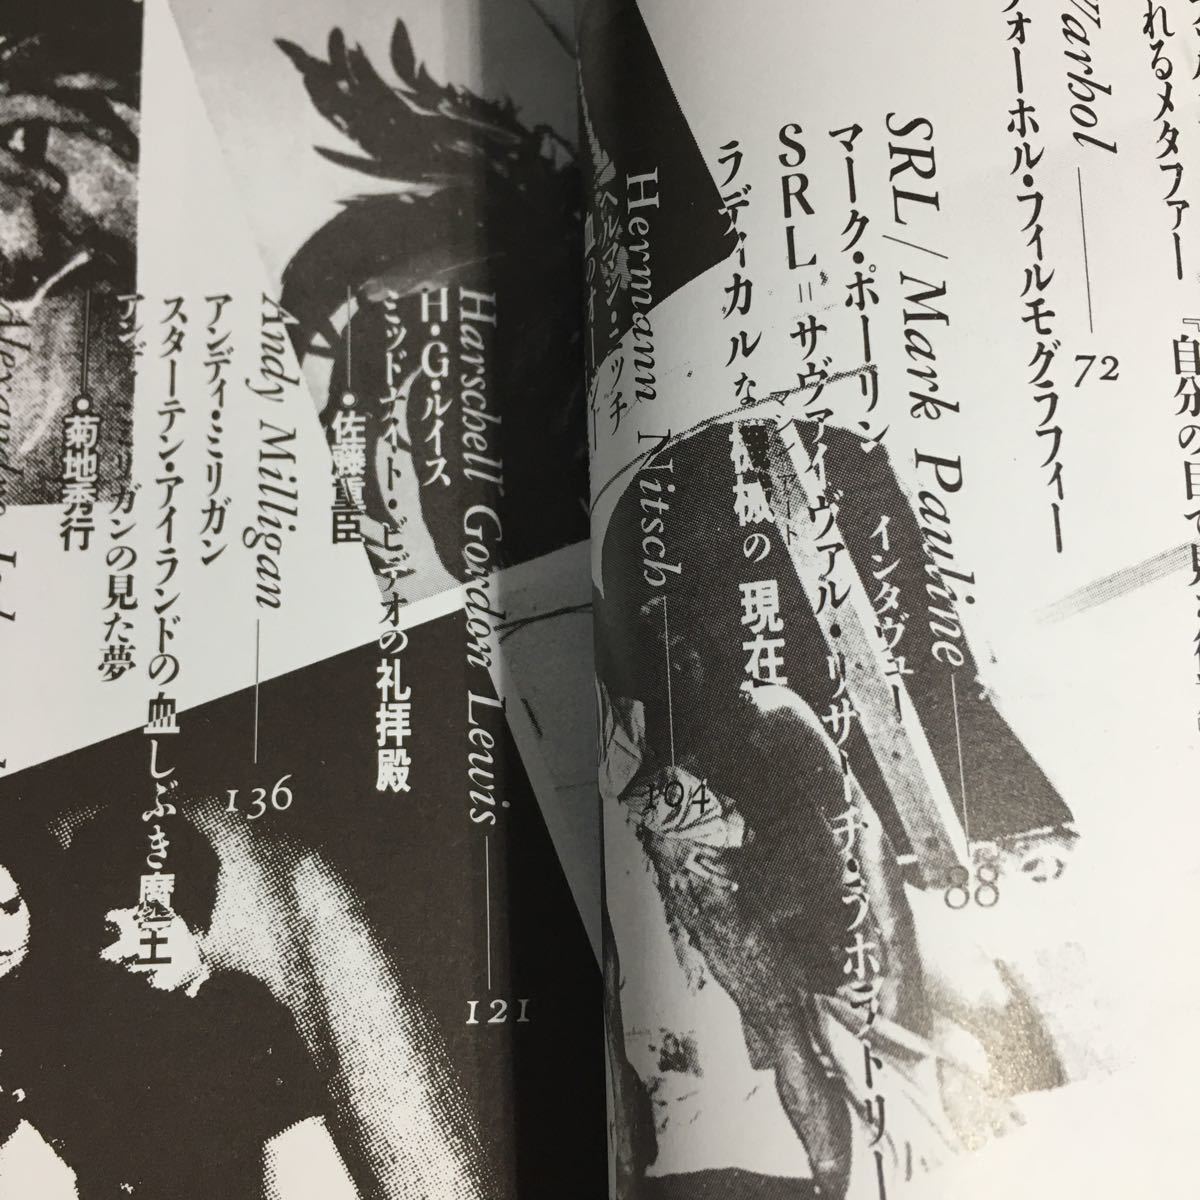 れるメタファー 『自分の目で見
Warhol 72
ウォーホル・フィルモグラフィー
SRL/Mark Pauline 88
マーク・ポーリン インタヴュー
SRL=サヴァイヴァル・リサーチ・ラボラトリー
ラディカルな機械の現在
マシン アート
Hermann Nitsch 104
ヘルマン・ニッチ
血のオー
Harschell Gordon Lewis 121
H・G・ルイス
ミッドナイト・ビデオの礼拝殿
・佐藤重臣
Andy Milligan 136
アンディ・ミリガン
スターテン・アイランドの血しぶき魔王
アンディ・ミリガンの見た夢
・菊地秀行